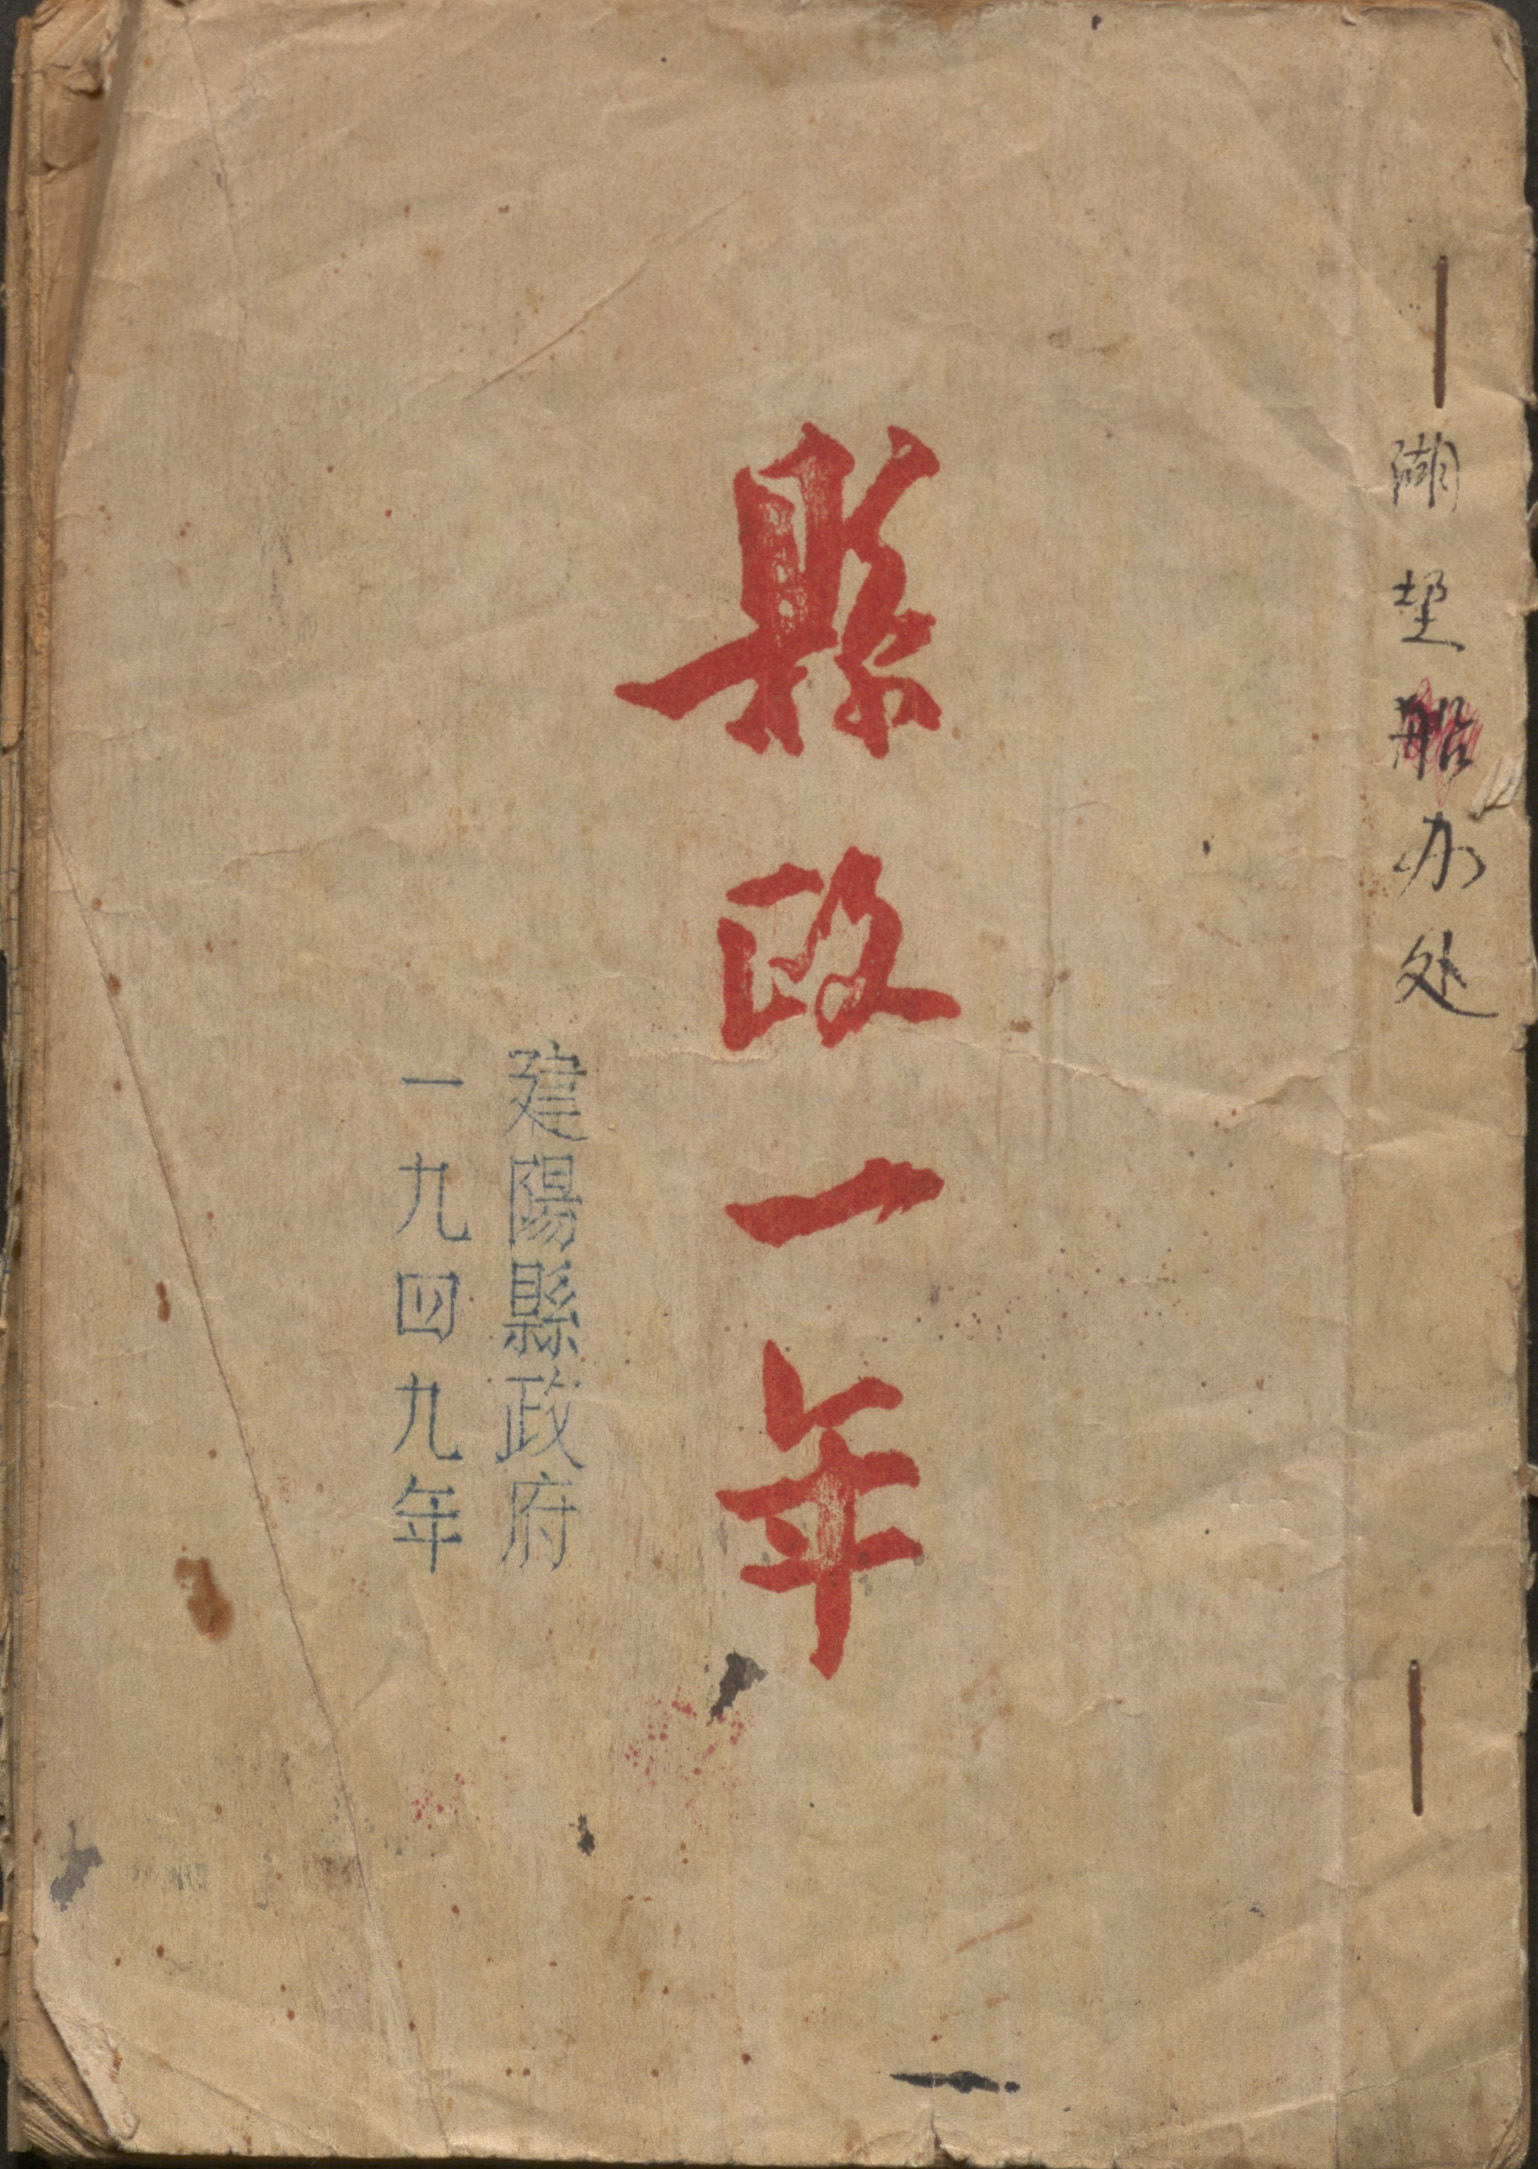 湖垡船办处
縣政一年
建陽縣政府
一九四九年